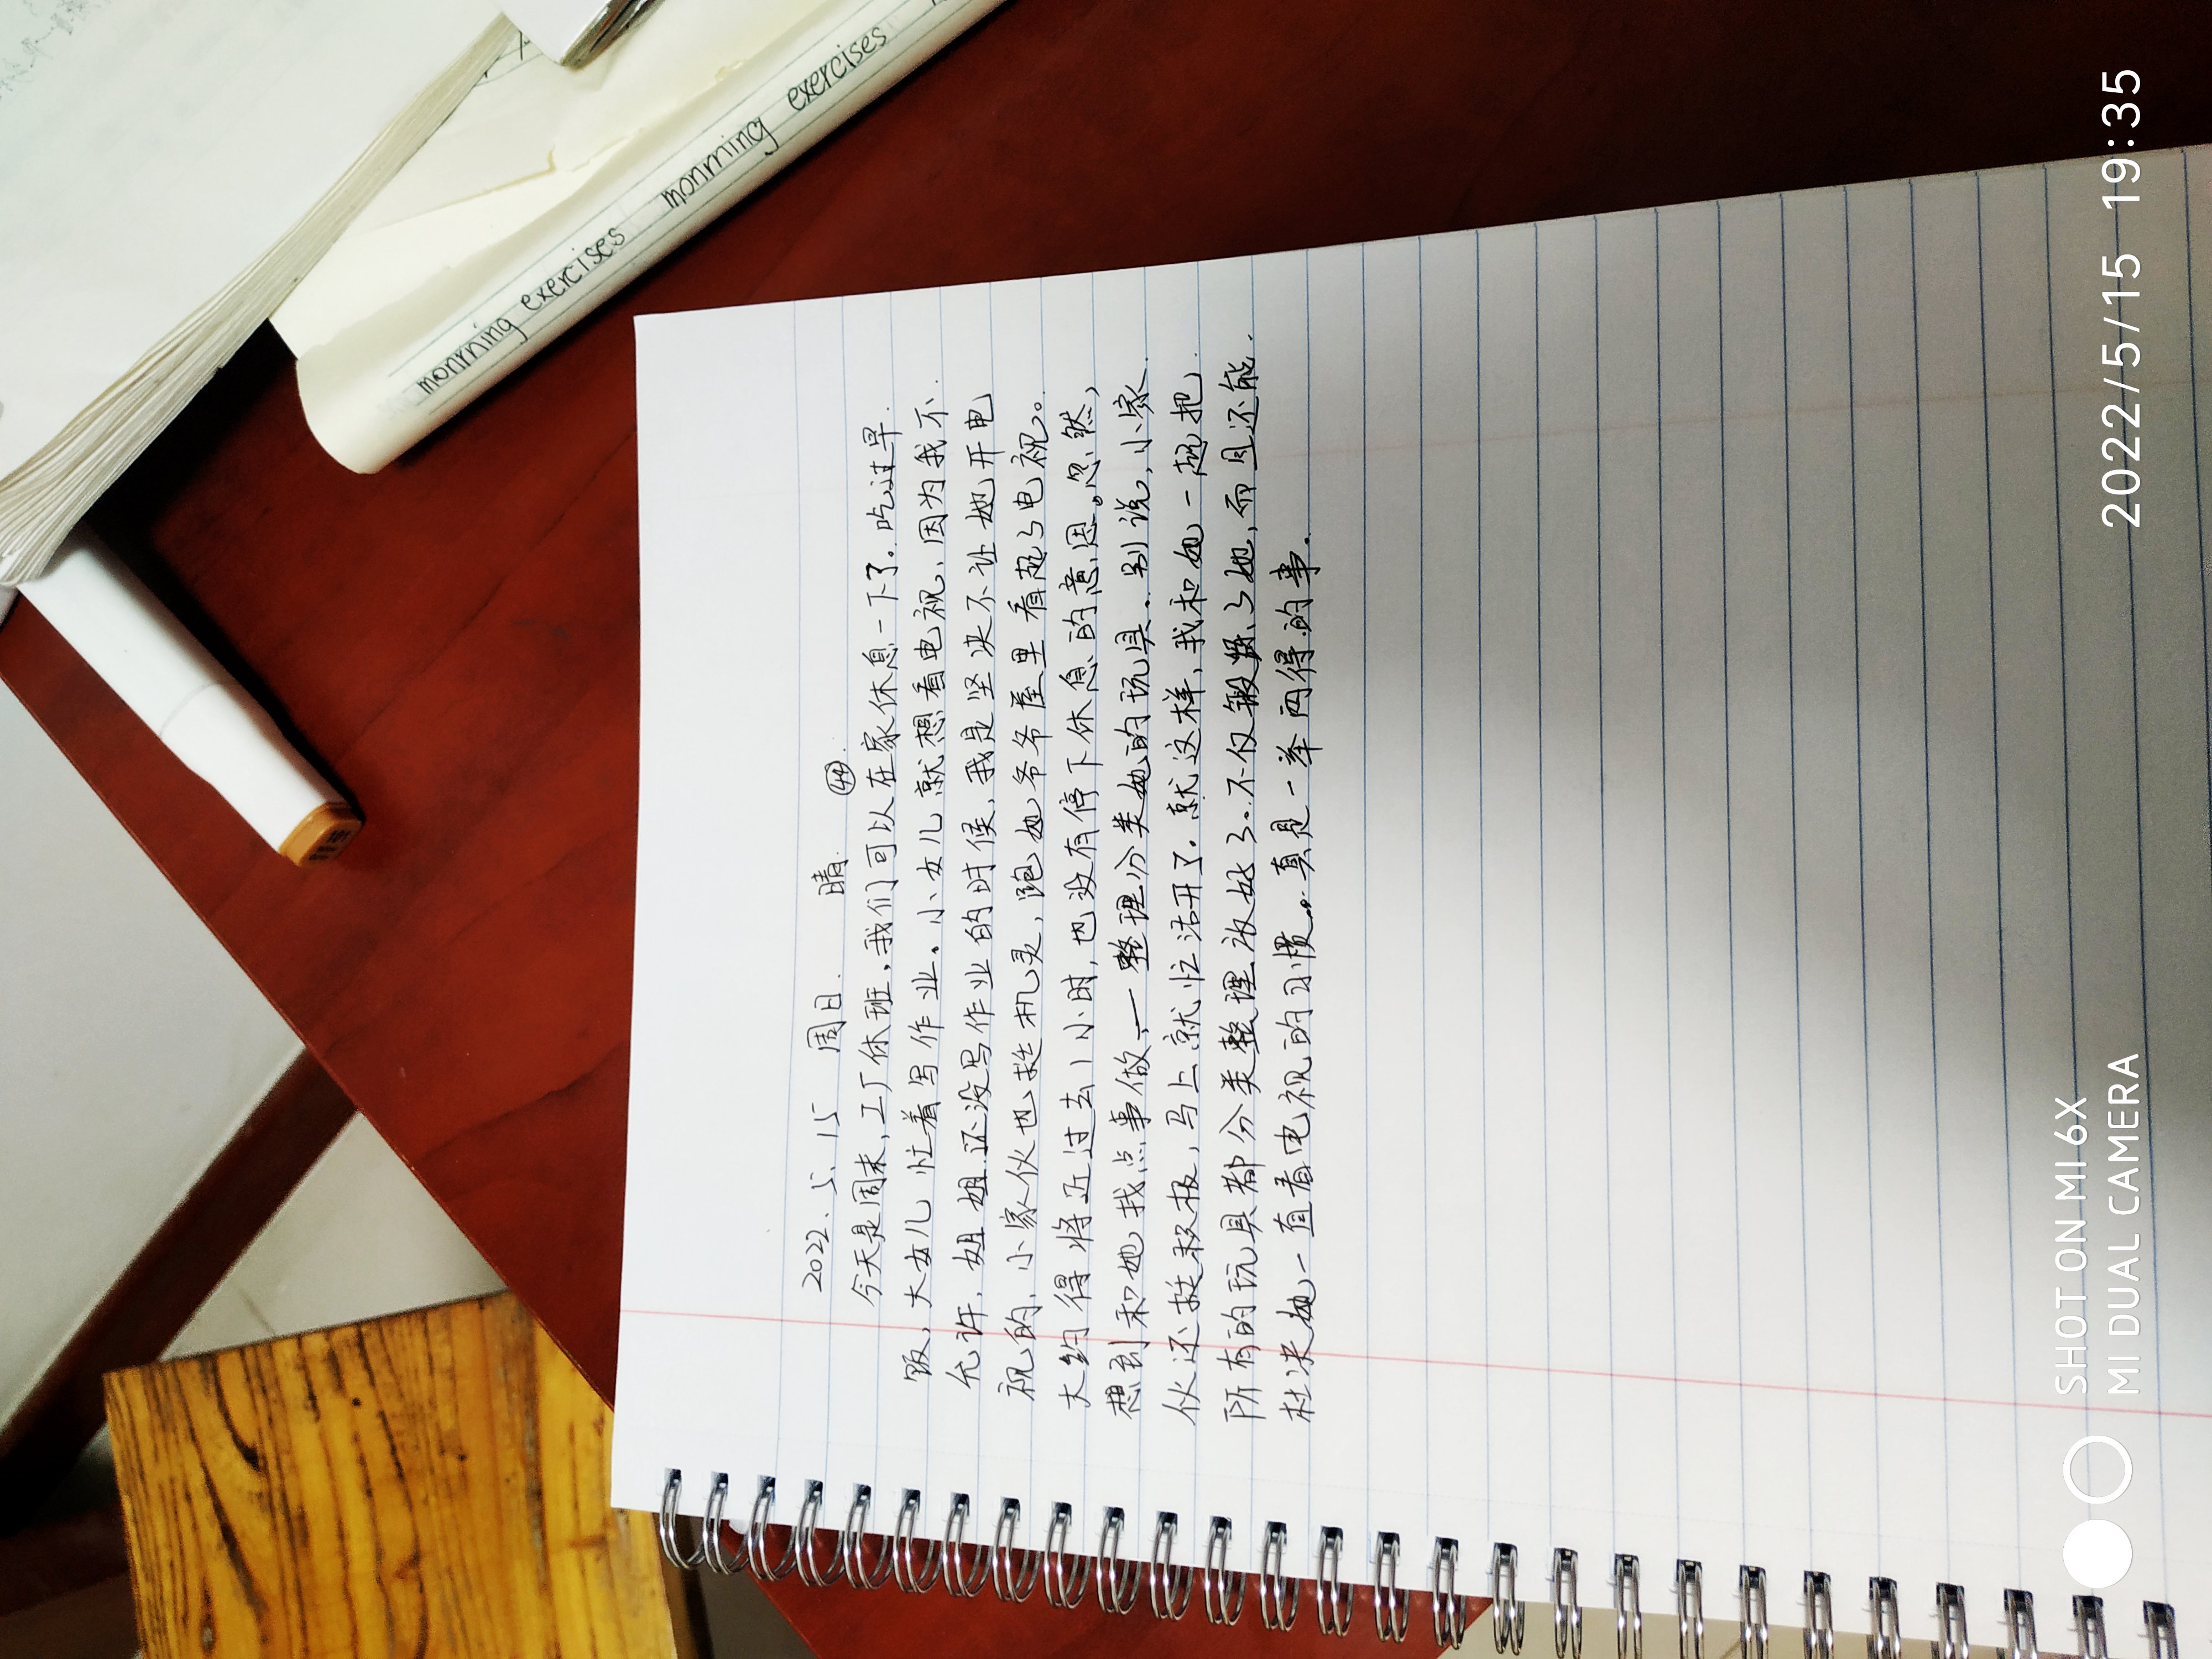 2022.5.15 周日. 晴. 44.
今天是周末,工厂休班,我们可以在家休息一下了.吃过早.
饭,大女儿忙着写作业.小女儿就想看电视,因为我不.
允许.姐姐还没写作业的时候,我是坚决不让她开电
视的.小家伙也挺机灵,跑她爷爷屋里看起了电视。
大约得将近过去1小时,也没有停下休息的意思。忽然,
想到和她找点事做,一整理分类她的玩具.别说,小家.
伙还挺积极,马上就忙活开了.就这样,我和她一起把.
所有的玩具都分类整理放好了.不仅锻炼了她,而且还能.
杜决她一直看电视的习惯.真是一举两得的事.
monrning exercises monrning exercises
SHOT ON MI 6X
MI DUAL CAMERA
2022/5/15 19:35